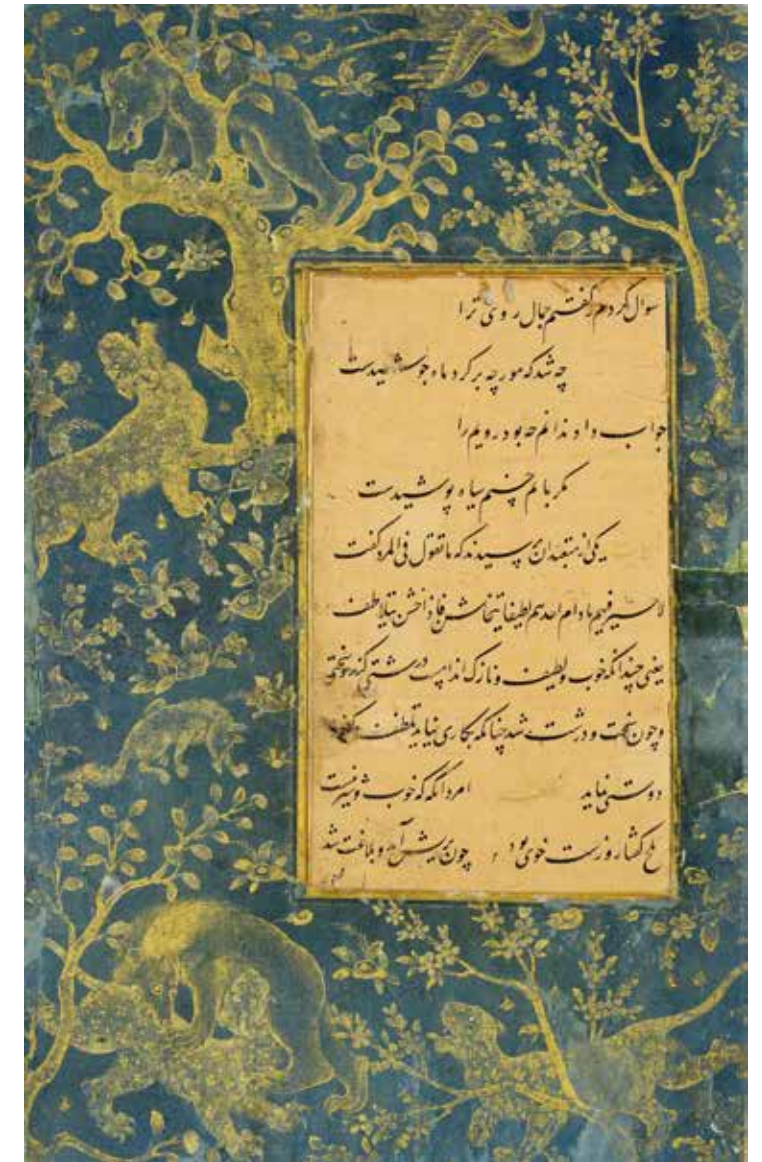 سوال کردم و گفتم جمال روی ترا
چه شد که مورچه بر کرد ماه جوشیدست
جواب داد ندانم چه بود رویم را
مکر بماتم حسنم سیاه پوشیدست
یکی از متعبدان پرسیدند که ما تقول فی المرد گفت
لاخیر فیهم مادام احدهم لطیفا یتخاشن فاذا خشن یتلاطف
یعنی چندانکه خوب و لطیف و نازک اندامست درشتی کند و سختی
و چون سخت و درشت شد چنانکه بکاری نیاید تلطف کند و
دوستی نماید امرد آنکه که خوب و شیرینست
تلخ کفتار و زشت خوی بود چون بریش آمد و بلاغت شد